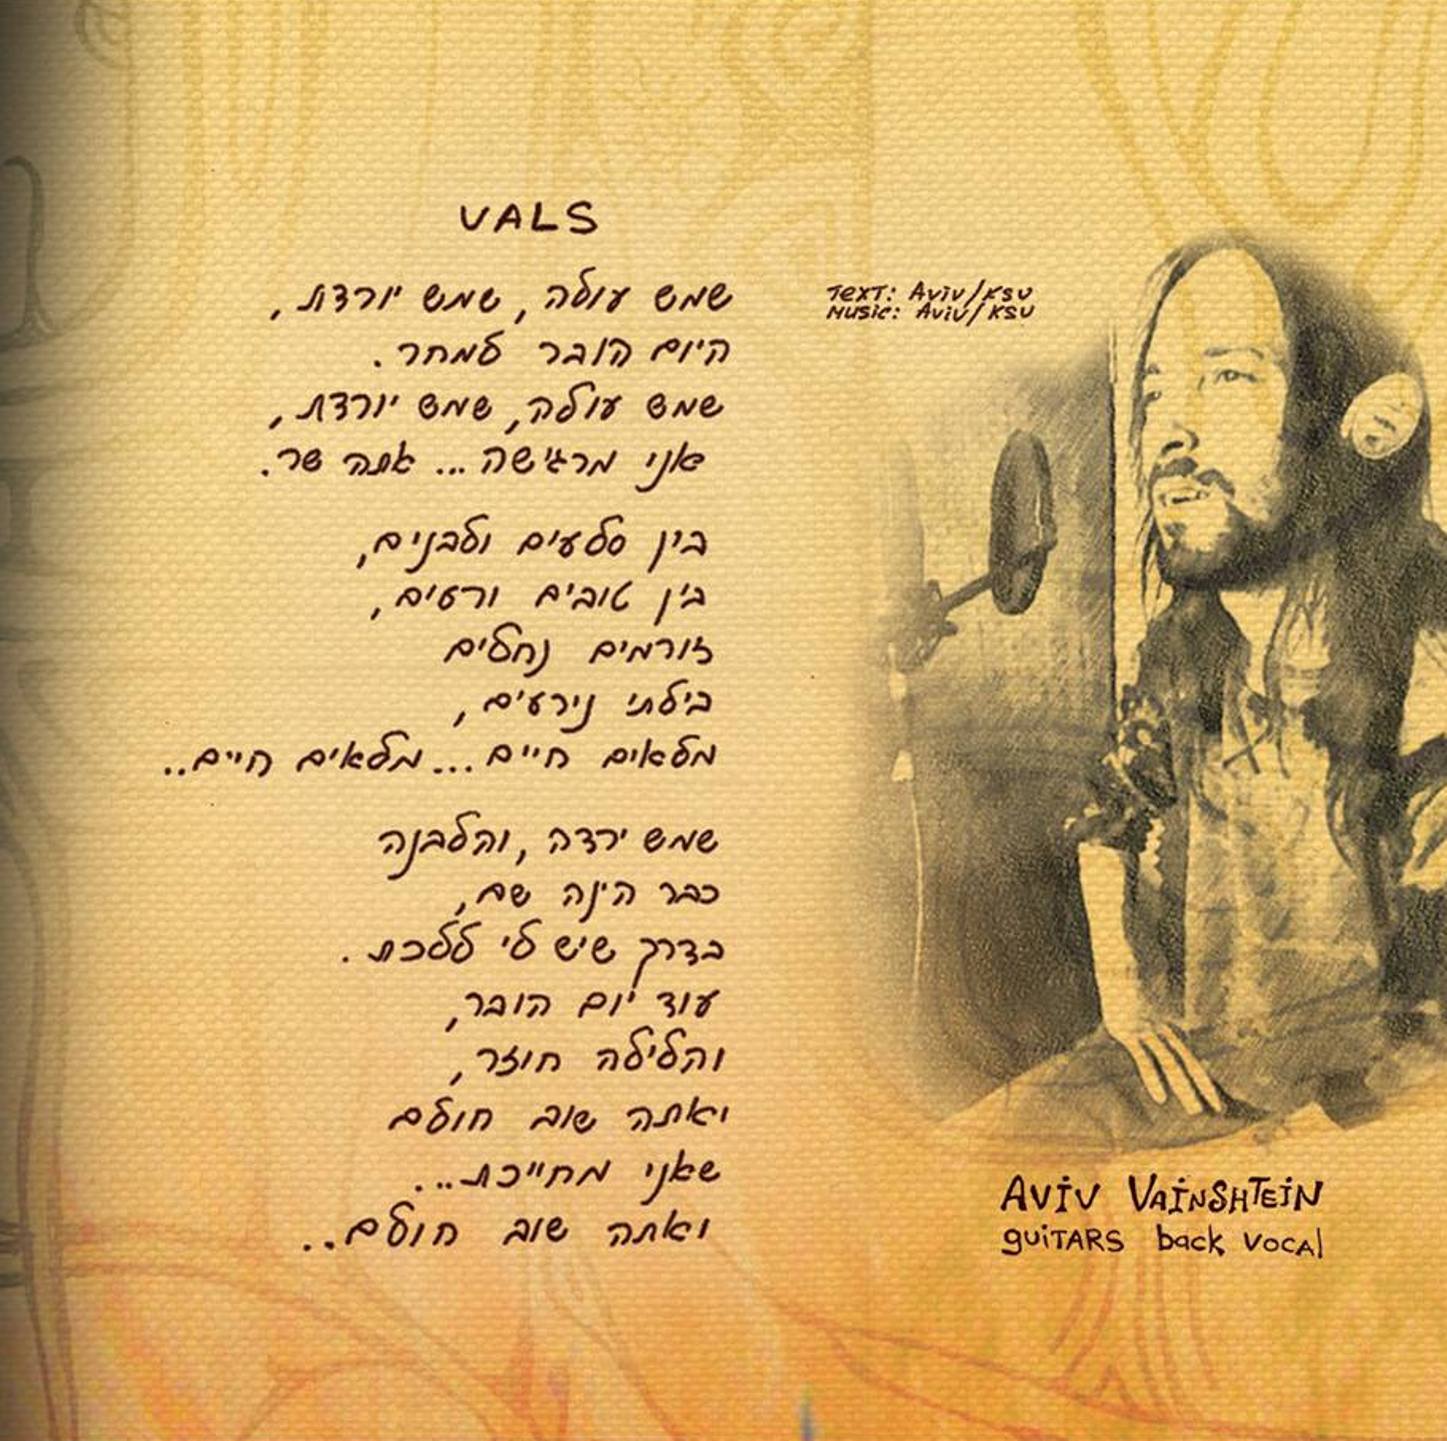 VALS
שמש עולה, שמש יורדת,
היום הובר למחר.
שמש עולה, שמש יורדת,
אני מרגישה... אתה שר.
בין סלעים ולבנים,
בין טובים ורעים,
זורמים נחלים
בילתי נירעים,
מלאים חיים... מלאים חיים..
שמש ירדה, והלבנה
כבר הינה שם,
בדרך שיש לי ללכת.
עוד יום הובר,
והלילה חוזר,
ואתה שוב חולם
שאני מחייכת...
ואתה שוב חולם..
TEXT: Aviv/KSU
MUSIC: AVIV/KSU
AVIV VAINSHTEIN
guiTARS back VOCAl